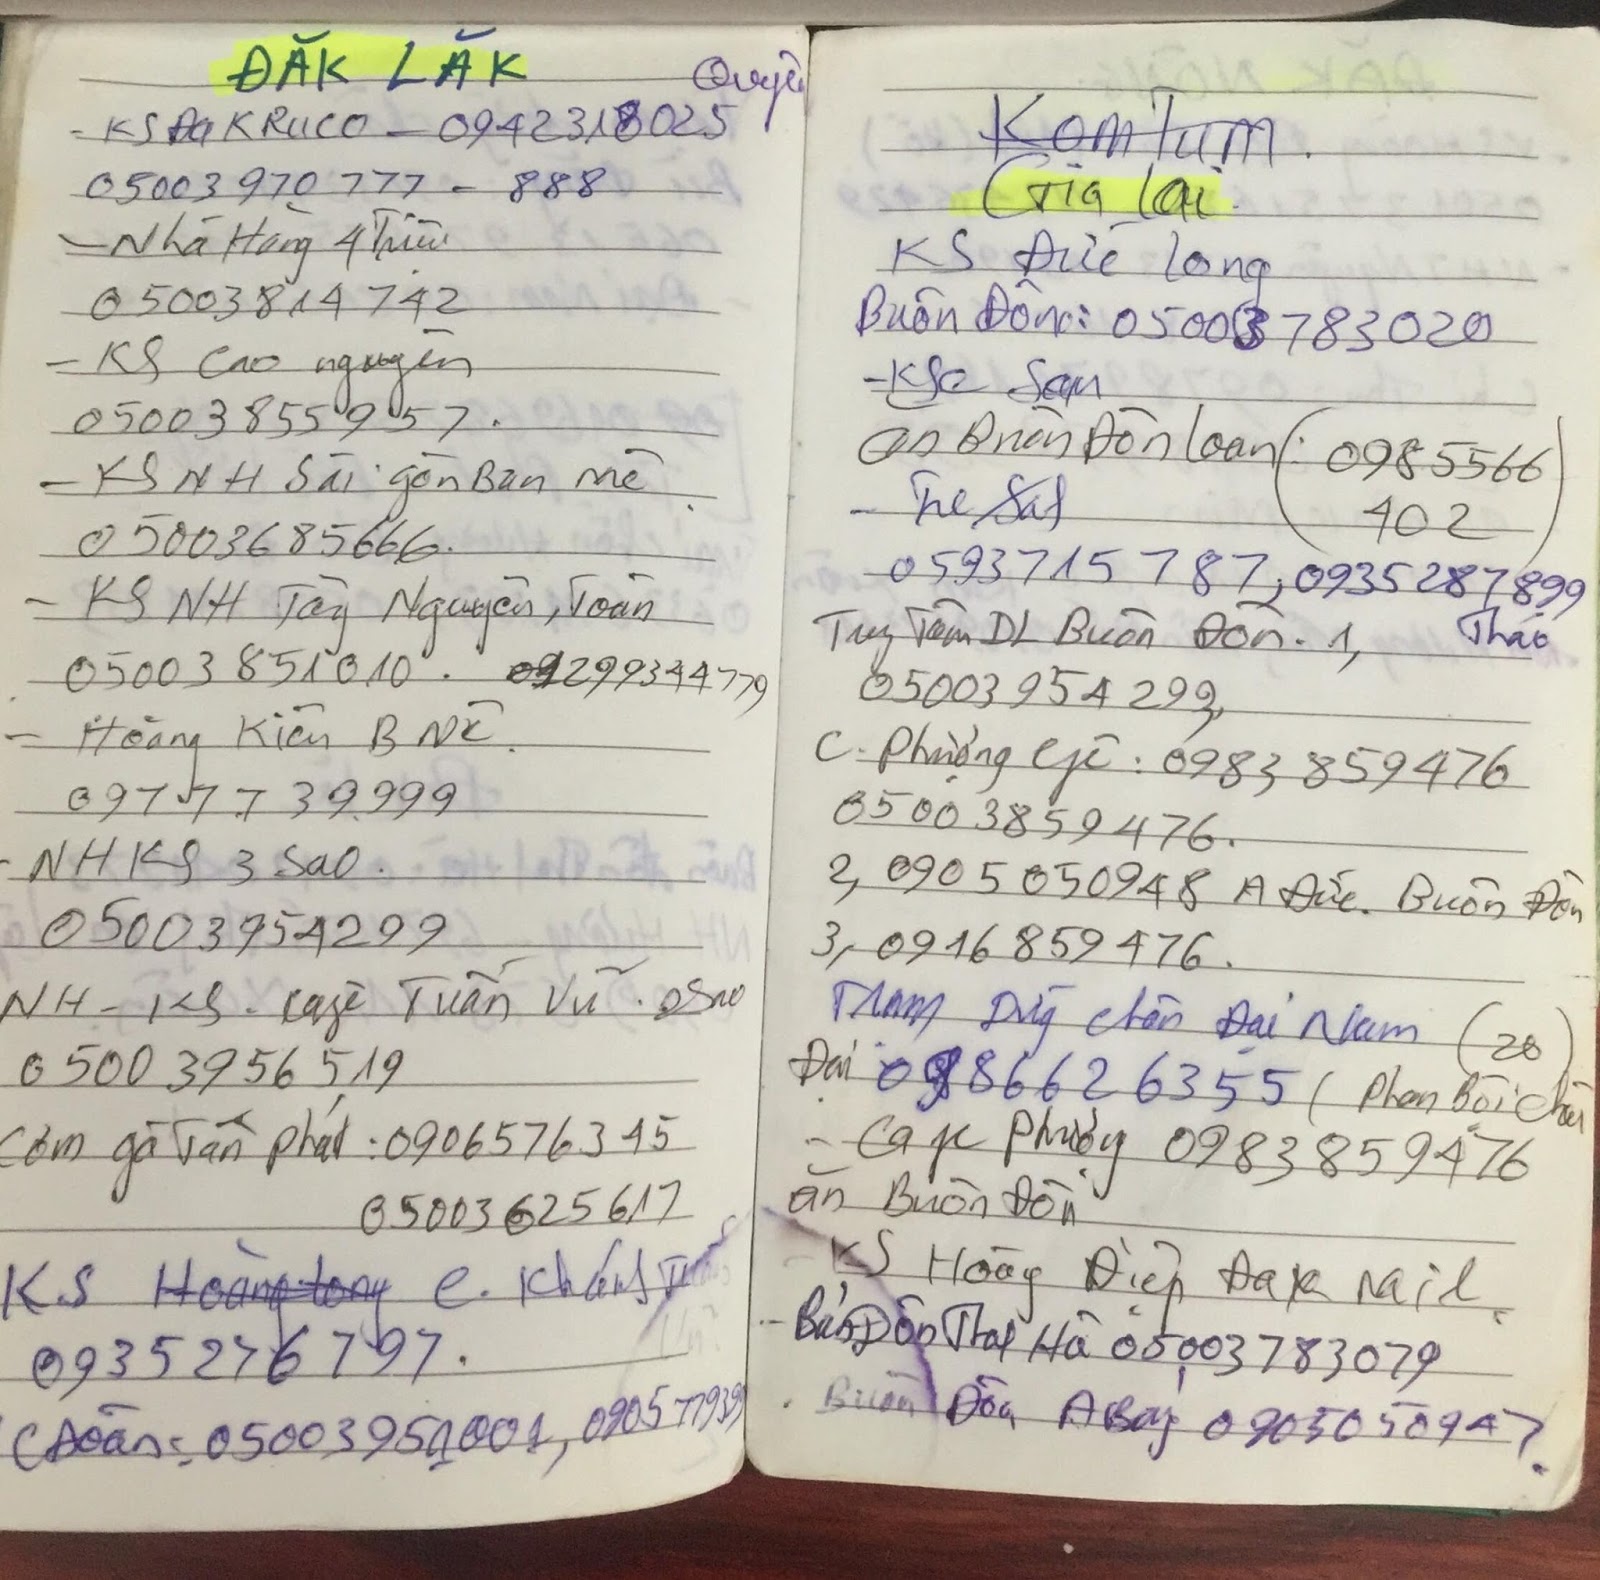 ĐĂK LĂK
Quyên
- KS ĐaKRUCO - 0942318025
05003970777 - 888
- Nhà Hàng 4 Triều
05003814742
- KS Cao nguyên
05003855957.
- KS NH Sài gòn Ban mê
05003685666.
- KS NH Tây Nguyên, Toàn
05003851010. 01299344779
- Hoàng Kiên BMê.
0977.739.999
- NH KS 3 Sao.
05003954299
NH - KS. cafê Tuấn Vũ. 2 Sao
05003956519
Cơm gà Tấn Phát: 0906576345
05003625617
KS Hoàng Long C. Khánh
0935276797.
C Đoàn: 05003951001, 090577939
KomTum.
Gia Lai.
KS Đức Long
Buôn Đôn: 05003783020
- KSe San
ăn Buôn Đôn Loan: (0985566
402)
- Tre Sat
0593715787, 0935287899
Trung Tâm DL Buôn Đôn. 1, Thảo
05003954299,
C. Phượng cafê: 0983859476
05003859476.
2, 0905050948 A Đức. Buôn Đôn
3, 0916859476.
Dũng chân Đại Nam (20)
Đài 0986626355 (Phan Bội Châu
- Cafe Phượng 0983859476
ăn Buôn Đôn
- KS Hoàng Diệp Đak Nail.
- Bản Đôn That Hà 05003783079
. Buôn Đôn A Bảy 0905050947.